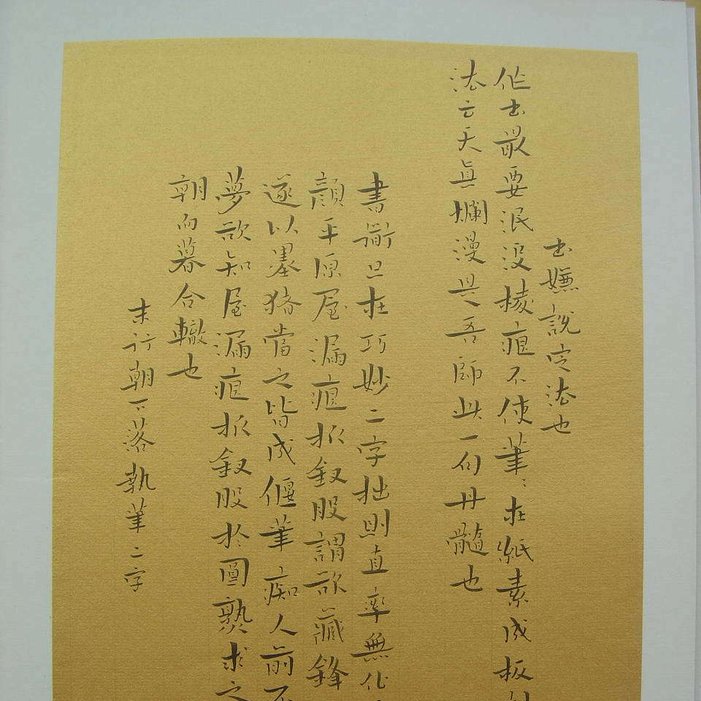 書說定法也
作書最要泯沒棱痕不使筆〻在紙素成板
法云天真爛漫是吾師此一句丹髓也
書衟只在巧妙二字拙則直率無化
顏平原屋漏痕折釵股謂欲藏鋒
遂以墨猪當之皆成偃筆痴人前不
夢欲知屋漏痕折釵股於圓熟求之
朝而暮合轍也
末行朝下落執筆二字